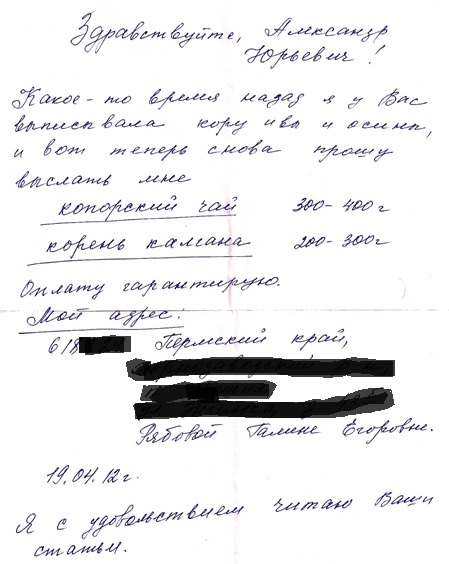 Здравствуйте, Александр
Юрьевич!
Какое-то время назад я у Вас
выписывала кору ивы и осины,
и вот теперь снова прошу
выслать мне
копорский чай 300-400г
корень калгана 200-300г
Оплату гарантирую.
Мой адрес:
618 Пермский край,
Рябовой Галине Егоровне.
19.04.12г.
Я с удовольствием читаю Ваши
статьи.